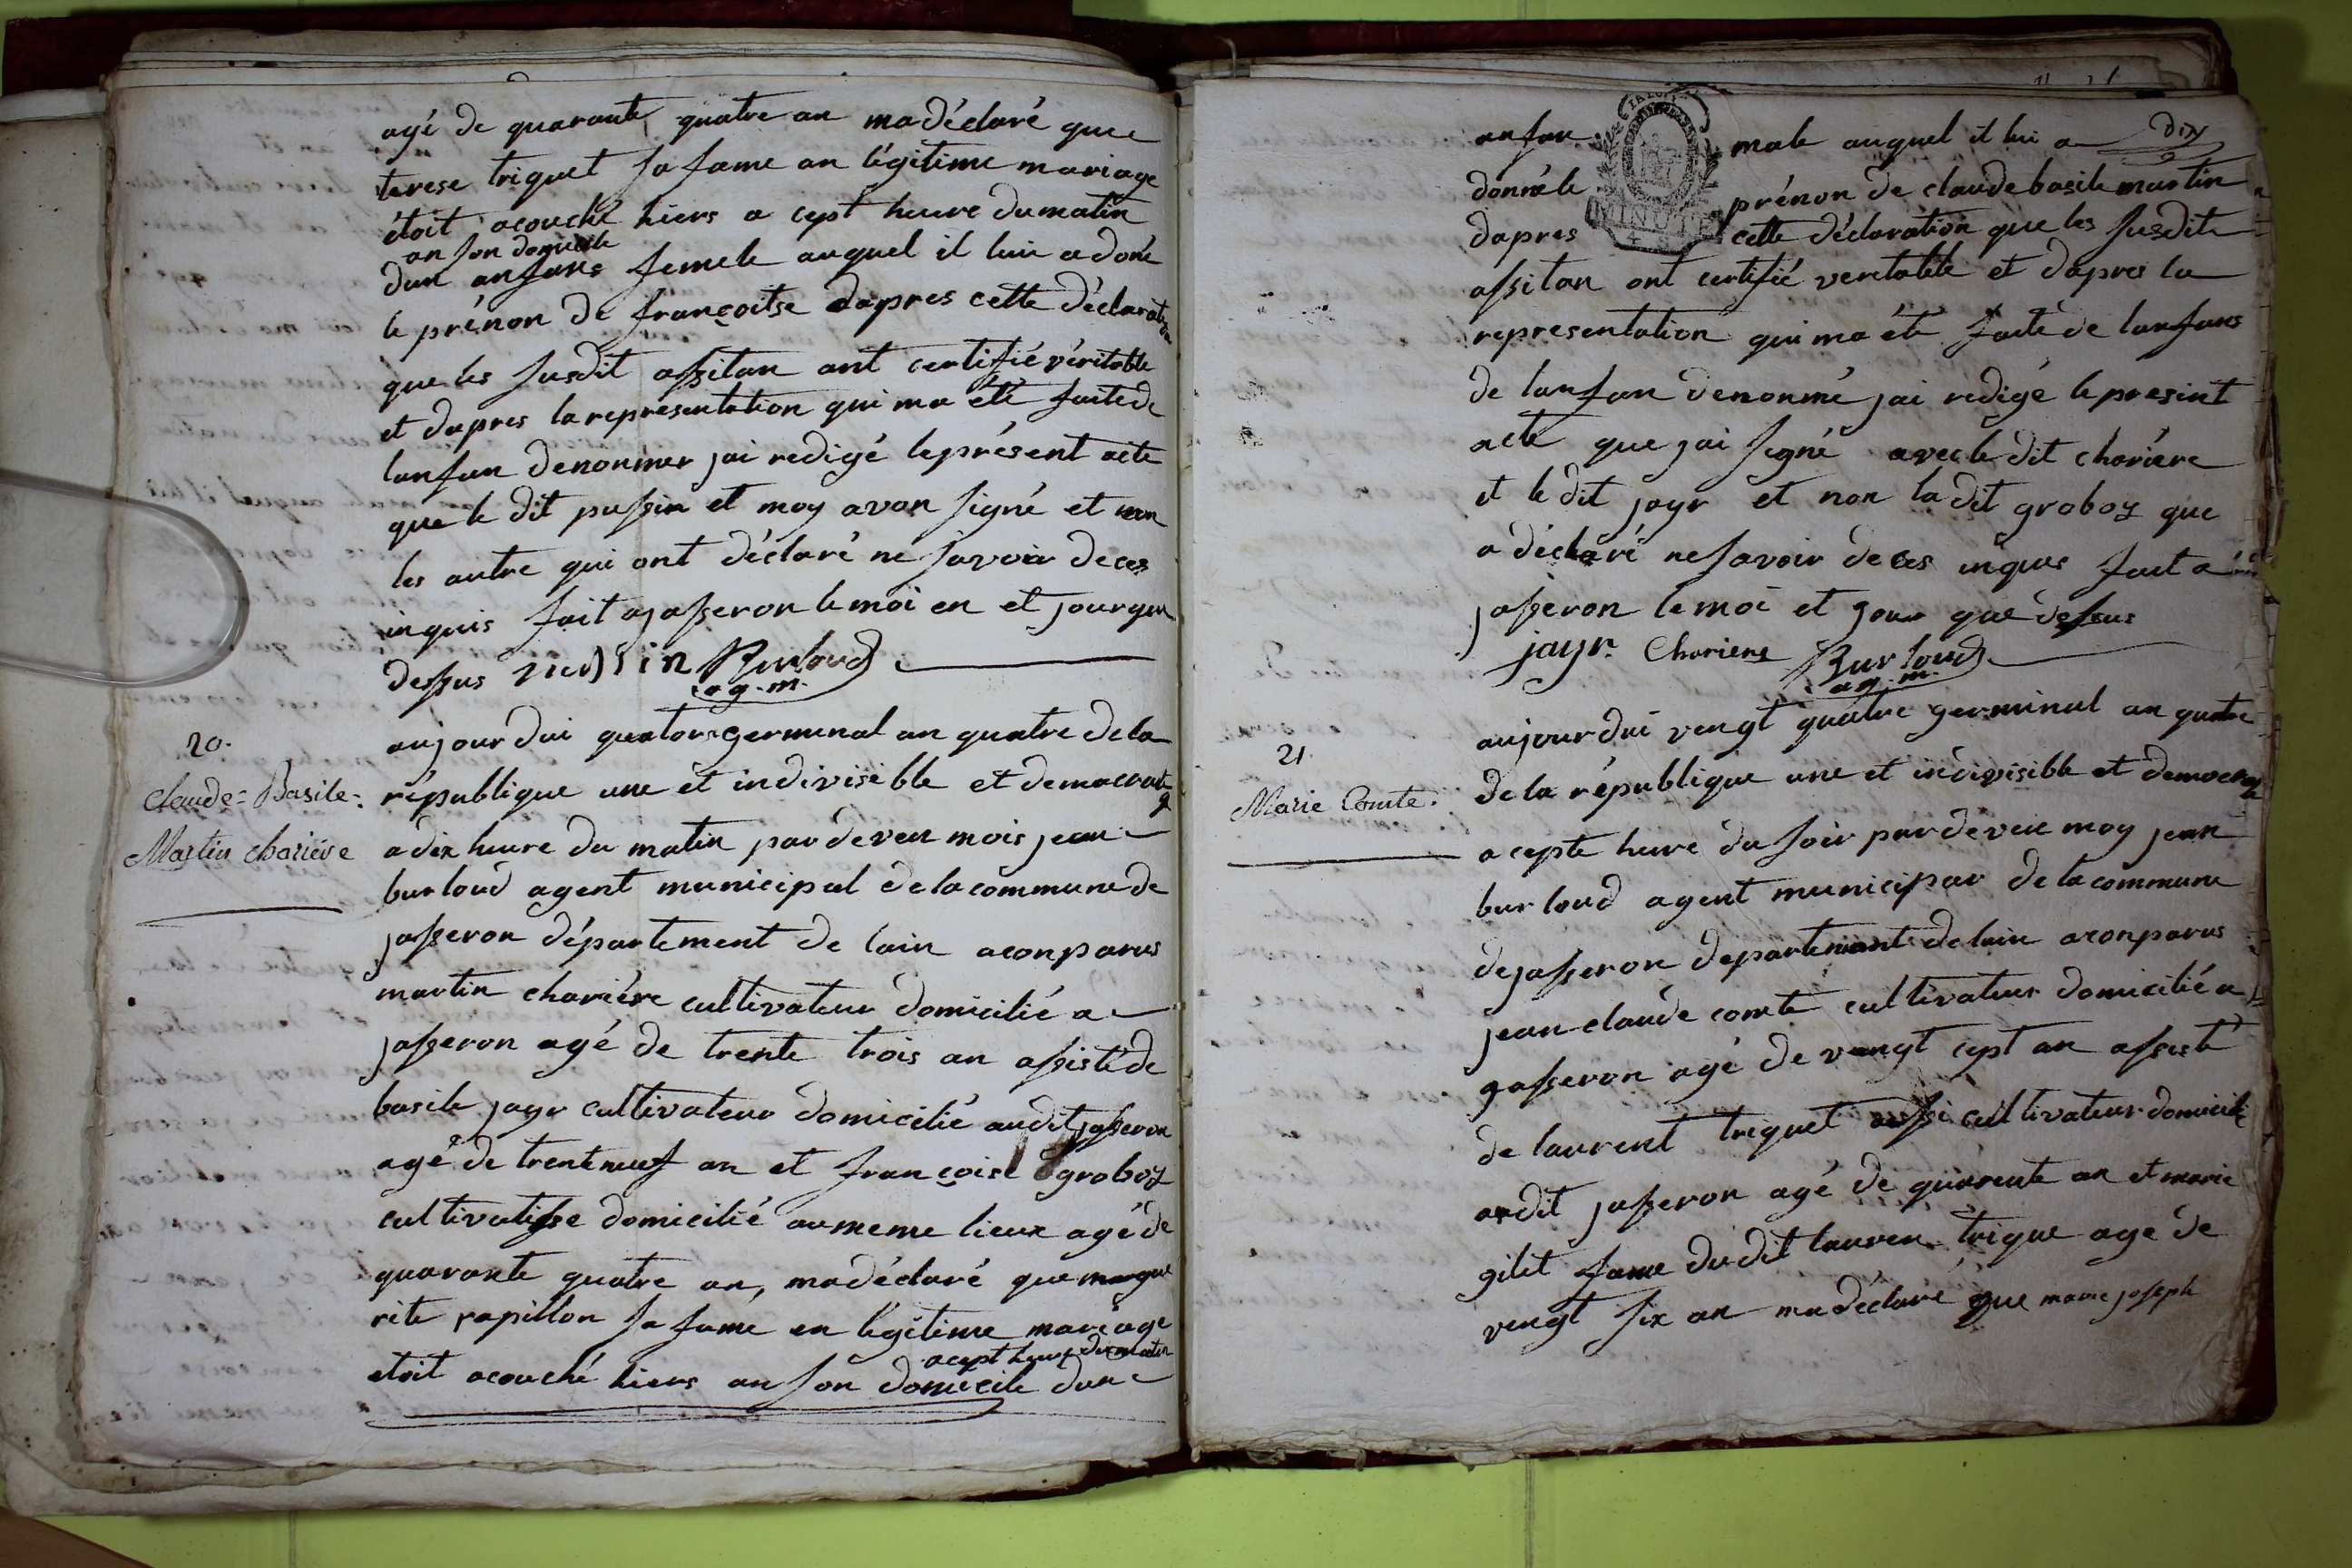 agé de quarante quatre an ma déclaré que
terese triquet sa fame an légitime mariage
étoit acouché hiers a cept heure du matin
an son domicile
dun anfans femele auquel il luis a doné
le prénon de françoitse dapres cette déclaration
que les susdit assitan ont certifié véritable
et dapres la representation qui ma été faite de
lanfan denonmer jai redigé le présent acte
que le dit passin et moy avon signé et non
les autre qui ont déclaré ne savoir de ces
inquis fait a jasseron le moi en et jour que
dessus passin Burloud
ag. m.
20.
Claude-Basile-
Martin chariére
aujourdui quatorse germinal an quatre de la
république une et indivisible et democratiq
a dix heure du matin par deven mois jean
burloud agent municipal de la commune de
jasseron département de lain aconparus
martin chariére cultivateur domicilié a
jasseron agé de trente trois an assisté de
basile jayr cultivateur domicilié audit jasseron
agé de trenteneuf an et françoise groboz
cultivatisse domicilié au meme lieux agé de
quarante quatre an, ma déclaré que margue
rite papillon sa fame en légitime mariage
a cept heure du matin
etoit acouché hiers an son domicile dun
dix
anfan male auquel il lui a
donné le prénon de claude basile martin
dapres cette déclaration que les susdit
assitan ont certifié veritable et dapres la
representation qui ma été faite de lanfans
de lanfan denonmé jai redigé le present
acte que jai signé avec le dit chariere
et le dit jayr et non la dit groboz que
a déclaré ne savoir de ces inquis fait a
jasseron le moi et jour que dessus
jayr. Chariere Burloud
ag. m.
21
Marie Comte.
aujourdui vengt quatre germinal an quatre
de la république une et indivisible et democratiq
a cepte heure du soir par deven moy jean
burloud agent municipar de la commune
de jasseron departemant de lain aconparus
jean claude comte cultivateur domicilié a
gasseron agé de vangt cept an assisté
de laurent triquet aussi cultivateur domicilié
audit jasseron agé de quarente an et marie
gilet fame dudit lauren trique age de
vengt six an ma déclaré que marie joseph